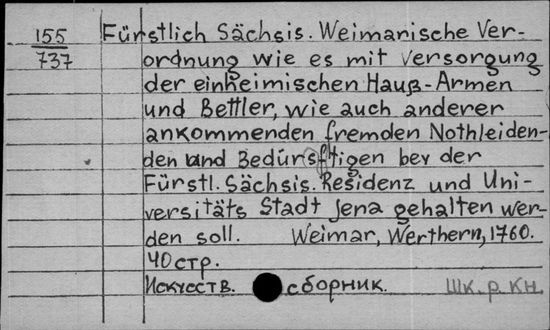 155
737
Fürstlich Sächsis. Weimarische Ver-
ordnung wie es mit Versorgung
der einheimischen Hauß-Armen
und Bettler, wie auch anderer
ankommenden fremden Nothleiden-
den und Bedürsftigen bey der
Fürstl. Sächsis. Residenz und Uni-
versitäts Stadt Jena gehalten wer-
den soll. Weimar, Werthern, 1760.
40 стр.
Искусств. сборник. Шк. р. Кн.